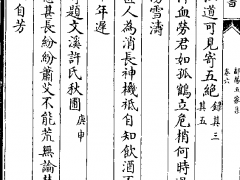 書
卷六
道可見寄五絕 錄其三 其五
血勞君如孤鶴立危梢何時
雪濤
人為消長神機祗自知飲酒
年遲
題文溪許氏秋圃 庚申
甚長紛紛蕭艾不能荒無論
自芳